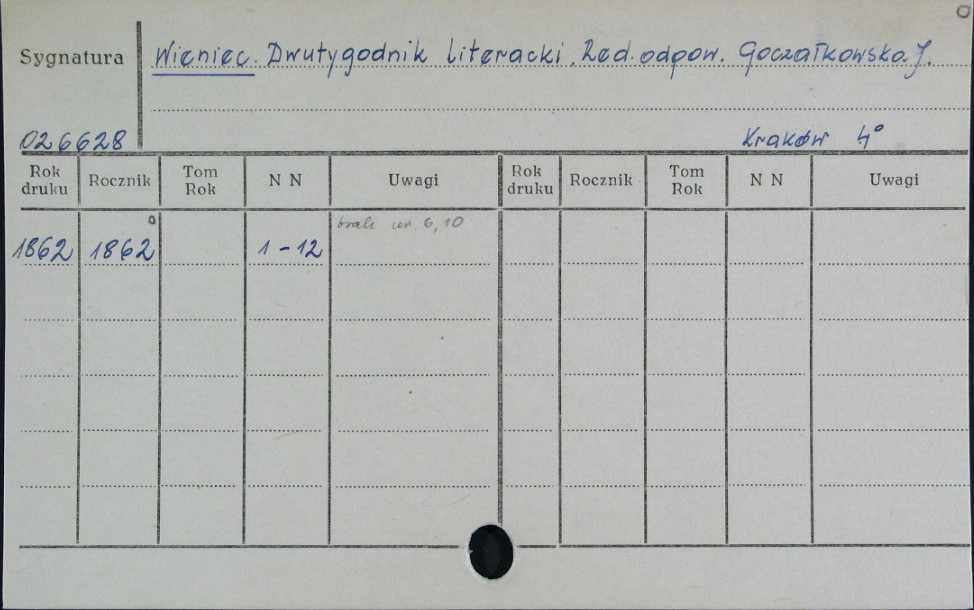 Sygnatura Wieniec. Dwutygodnik literacki. Red. odpow. Goczałkowska J.
026628 Kraków 4°
Rok druku Rocznik Tom Rok N N Uwagi Rok druku Rocznik Tom Rok N N Uwagi
brak nr. 6, 10
1862 1862 1-12